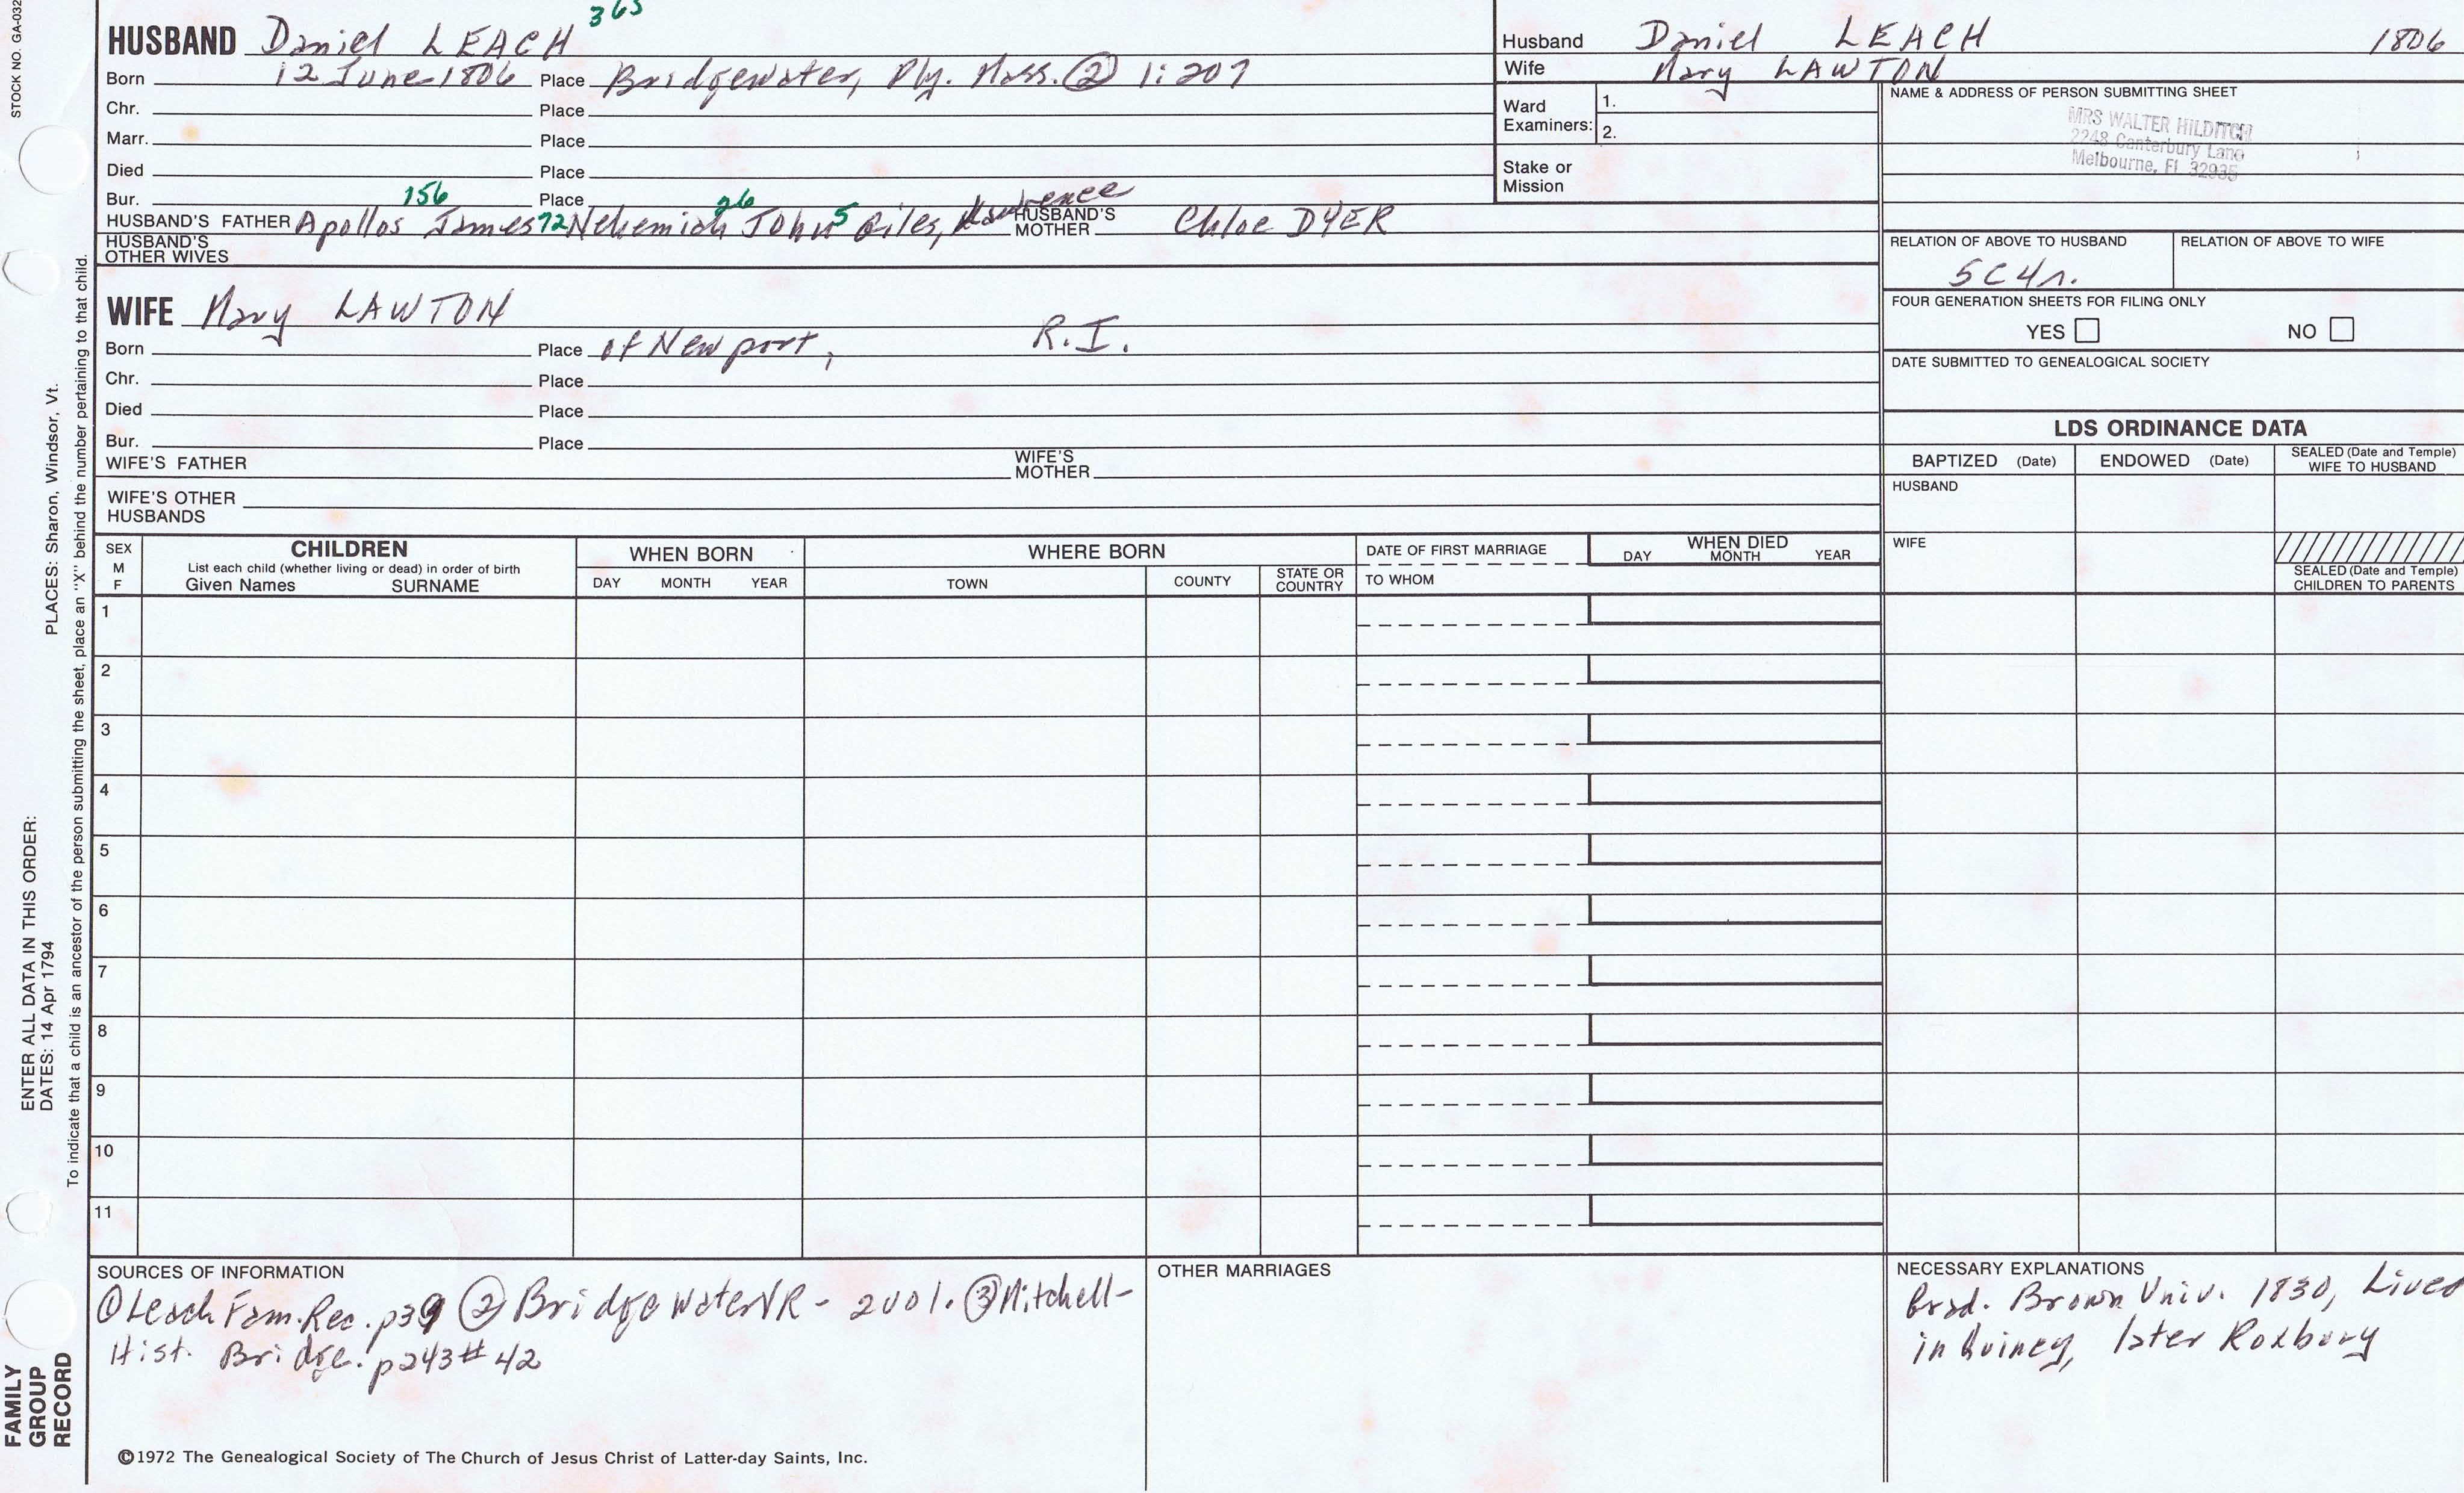 STOCK NO. GA-032
HUSBAND Daniel LEACH 365
Born 12 June 1806 Place Bridgewater, Ply. Mass. ② 1:207
Chr. Place
Marr. Place
Died Place
Bur. Place
HUSBAND'S FATHER Apollos 156 James 72 Nehemiah 26 John 5 Giles, Lawrence HUSBAND'S MOTHER Chloe DYER
HUSBAND'S OTHER WIVES
WIFE Mary LAWTON
Born Place of Newport, R.I.
Chr. Place
Died Place
Bur. Place
WIFE'S FATHER WIFE'S MOTHER
WIFE'S OTHER HUSBANDS
Husband Daniel LEACH 1806
Wife Mary LAWTON
Ward Examiners: 1.
2.
Stake or Mission
NAME & ADDRESS OF PERSON SUBMITTING SHEET
MRS WALTER HILDITCH
2248 Canterbury Lane
Melbourne, Fl 32935
RELATION OF ABOVE TO HUSBAND RELATION OF ABOVE TO WIFE
5C4r.
FOUR GENERATION SHEETS FOR FILING ONLY
YES NO
DATE SUBMITTED TO GENEALOGICAL SOCIETY
LDS ORDINANCE DATA
BAPTIZED (Date) ENDOWED (Date) SEALED (Date and Temple) WIFE TO HUSBAND
HUSBAND
WIFE
SEALED (Date and Temple) CHILDREN TO PARENTS
SEX M F
CHILDREN
List each child (whether living or dead) in order of birth
Given Names SURNAME
WHEN BORN
DAY MONTH YEAR
WHERE BORN
TOWN COUNTY STATE OR COUNTRY
DATE OF FIRST MARRIAGE
TO WHOM
WHEN DIED
DAY MONTH YEAR
1
2
3
4
5
6
7
8
9
10
11
SOURCES OF INFORMATION
① Leach Fam. Rec. p39 ② Bridgewater VR - 2 vol. ③ Mitchell-
Hist. Bridge. p243 # 42
OTHER MARRIAGES
NECESSARY EXPLANATIONS
Grad. Brown Univ. 1830, Lived
in Quincy, later Roxbury
©1972 The Genealogical Society of The Church of Jesus Christ of Latter-day Saints, Inc.
FAMILY
GROUP
RECORD
ENTER ALL DATA IN THIS ORDER:
DATES: 14 Apr 1794
PLACES: Sharon, Windsor, Vt.
To indicate that a child is an ancestor of the person submitting the sheet, place an "X" behind the number pertaining to that child.